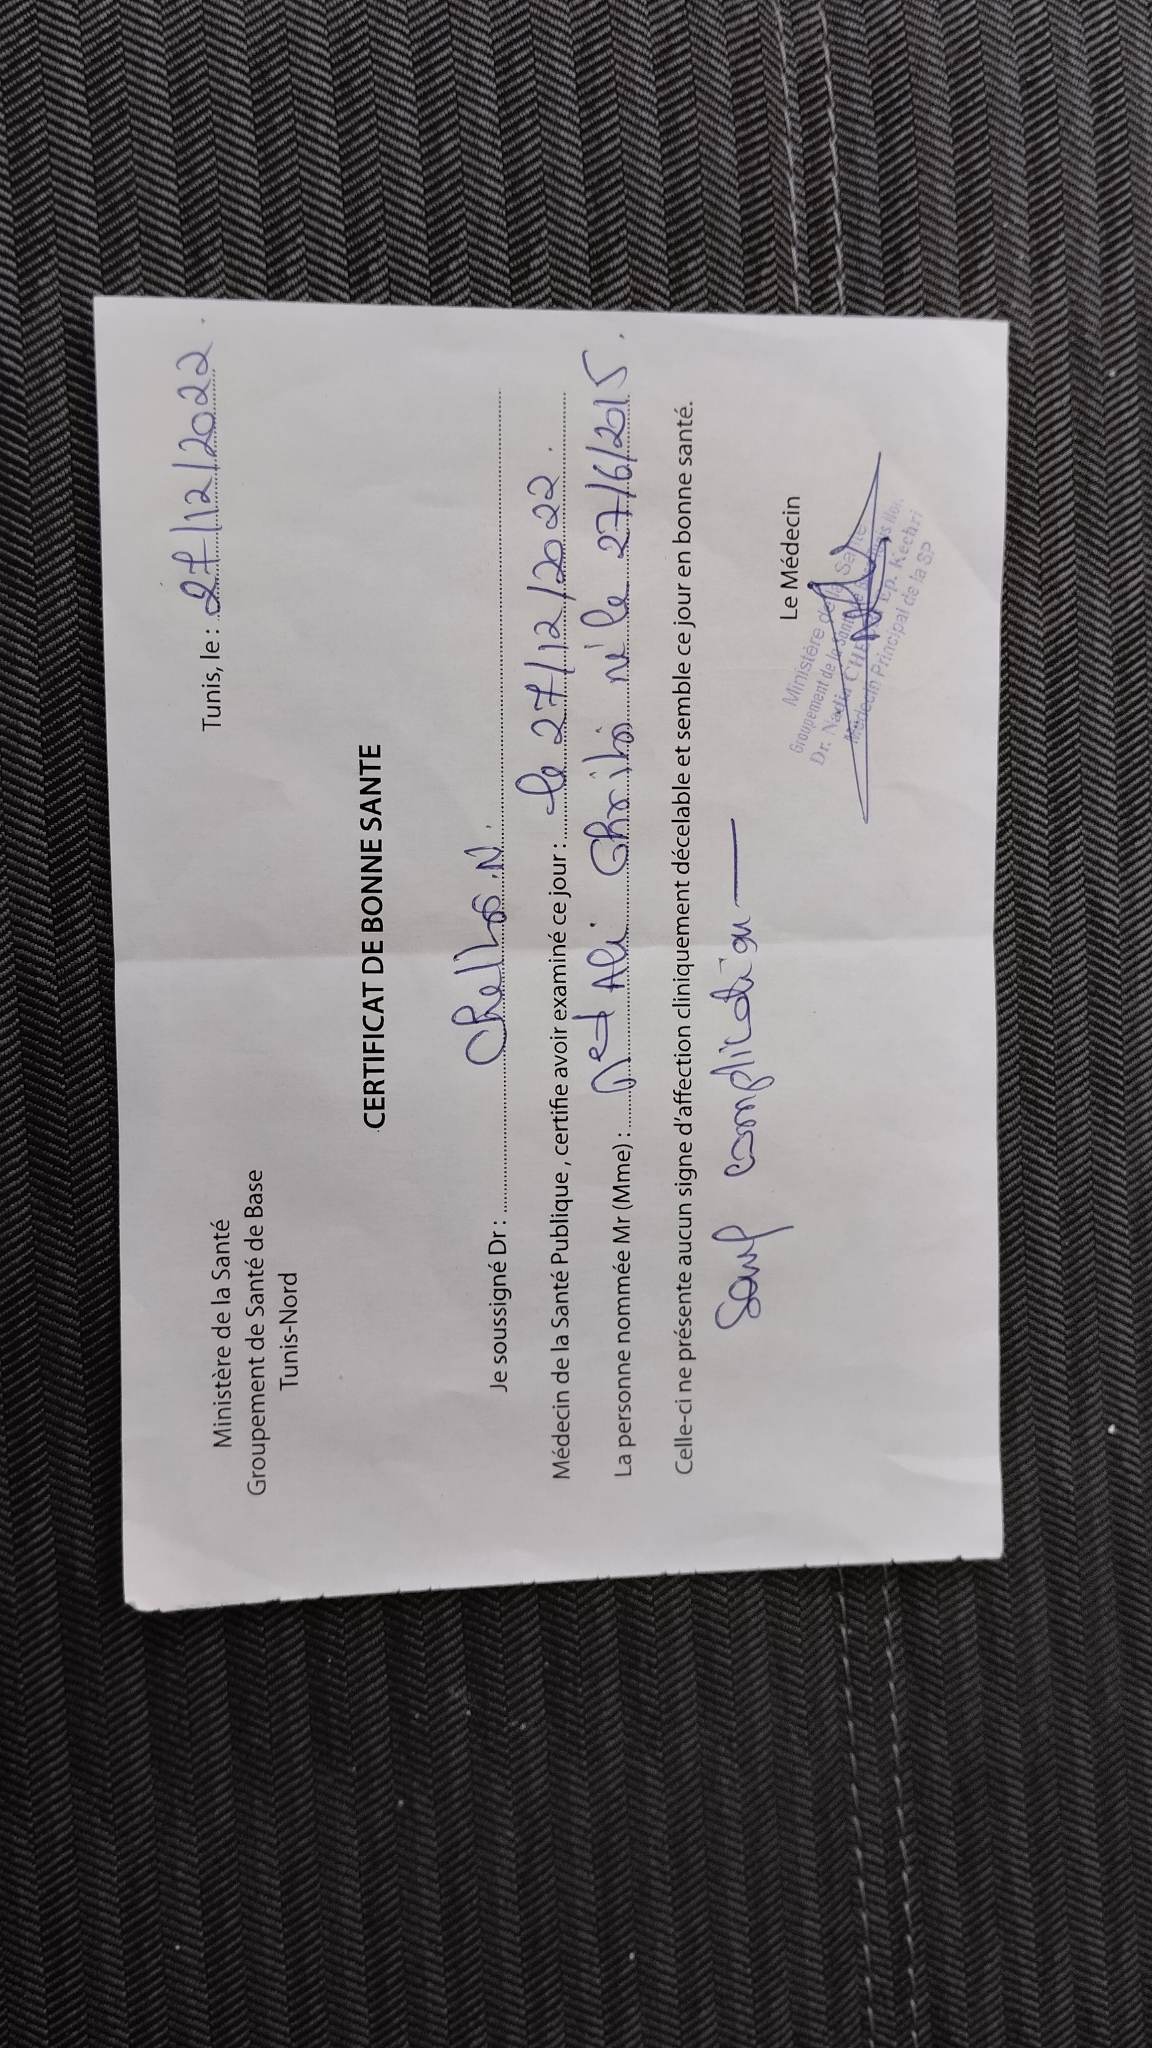 Ministère de la Santé
Groupement de Santé de Base
Tunis-Nord
Tunis, le : 27/12/2022.
CERTIFICAT DE BONNE SANTE
Je soussigné Dr : N.
Médecin de la Santé Publique , certifie avoir examiné ce jour : le 27/12/2022.
La personne nommée Mr (Mme) : Med Ali Ghribi né le 27/6/2015.
Celle-ci ne présente aucun signe d'affection cliniquement décelable et semble ce jour en bonne santé.
Sauf complication
Le Médecin
Ministère de la Santé
Groupement de la Santé de
Dr. Nadia Ep. Kechri
Médecin Principal de la SP